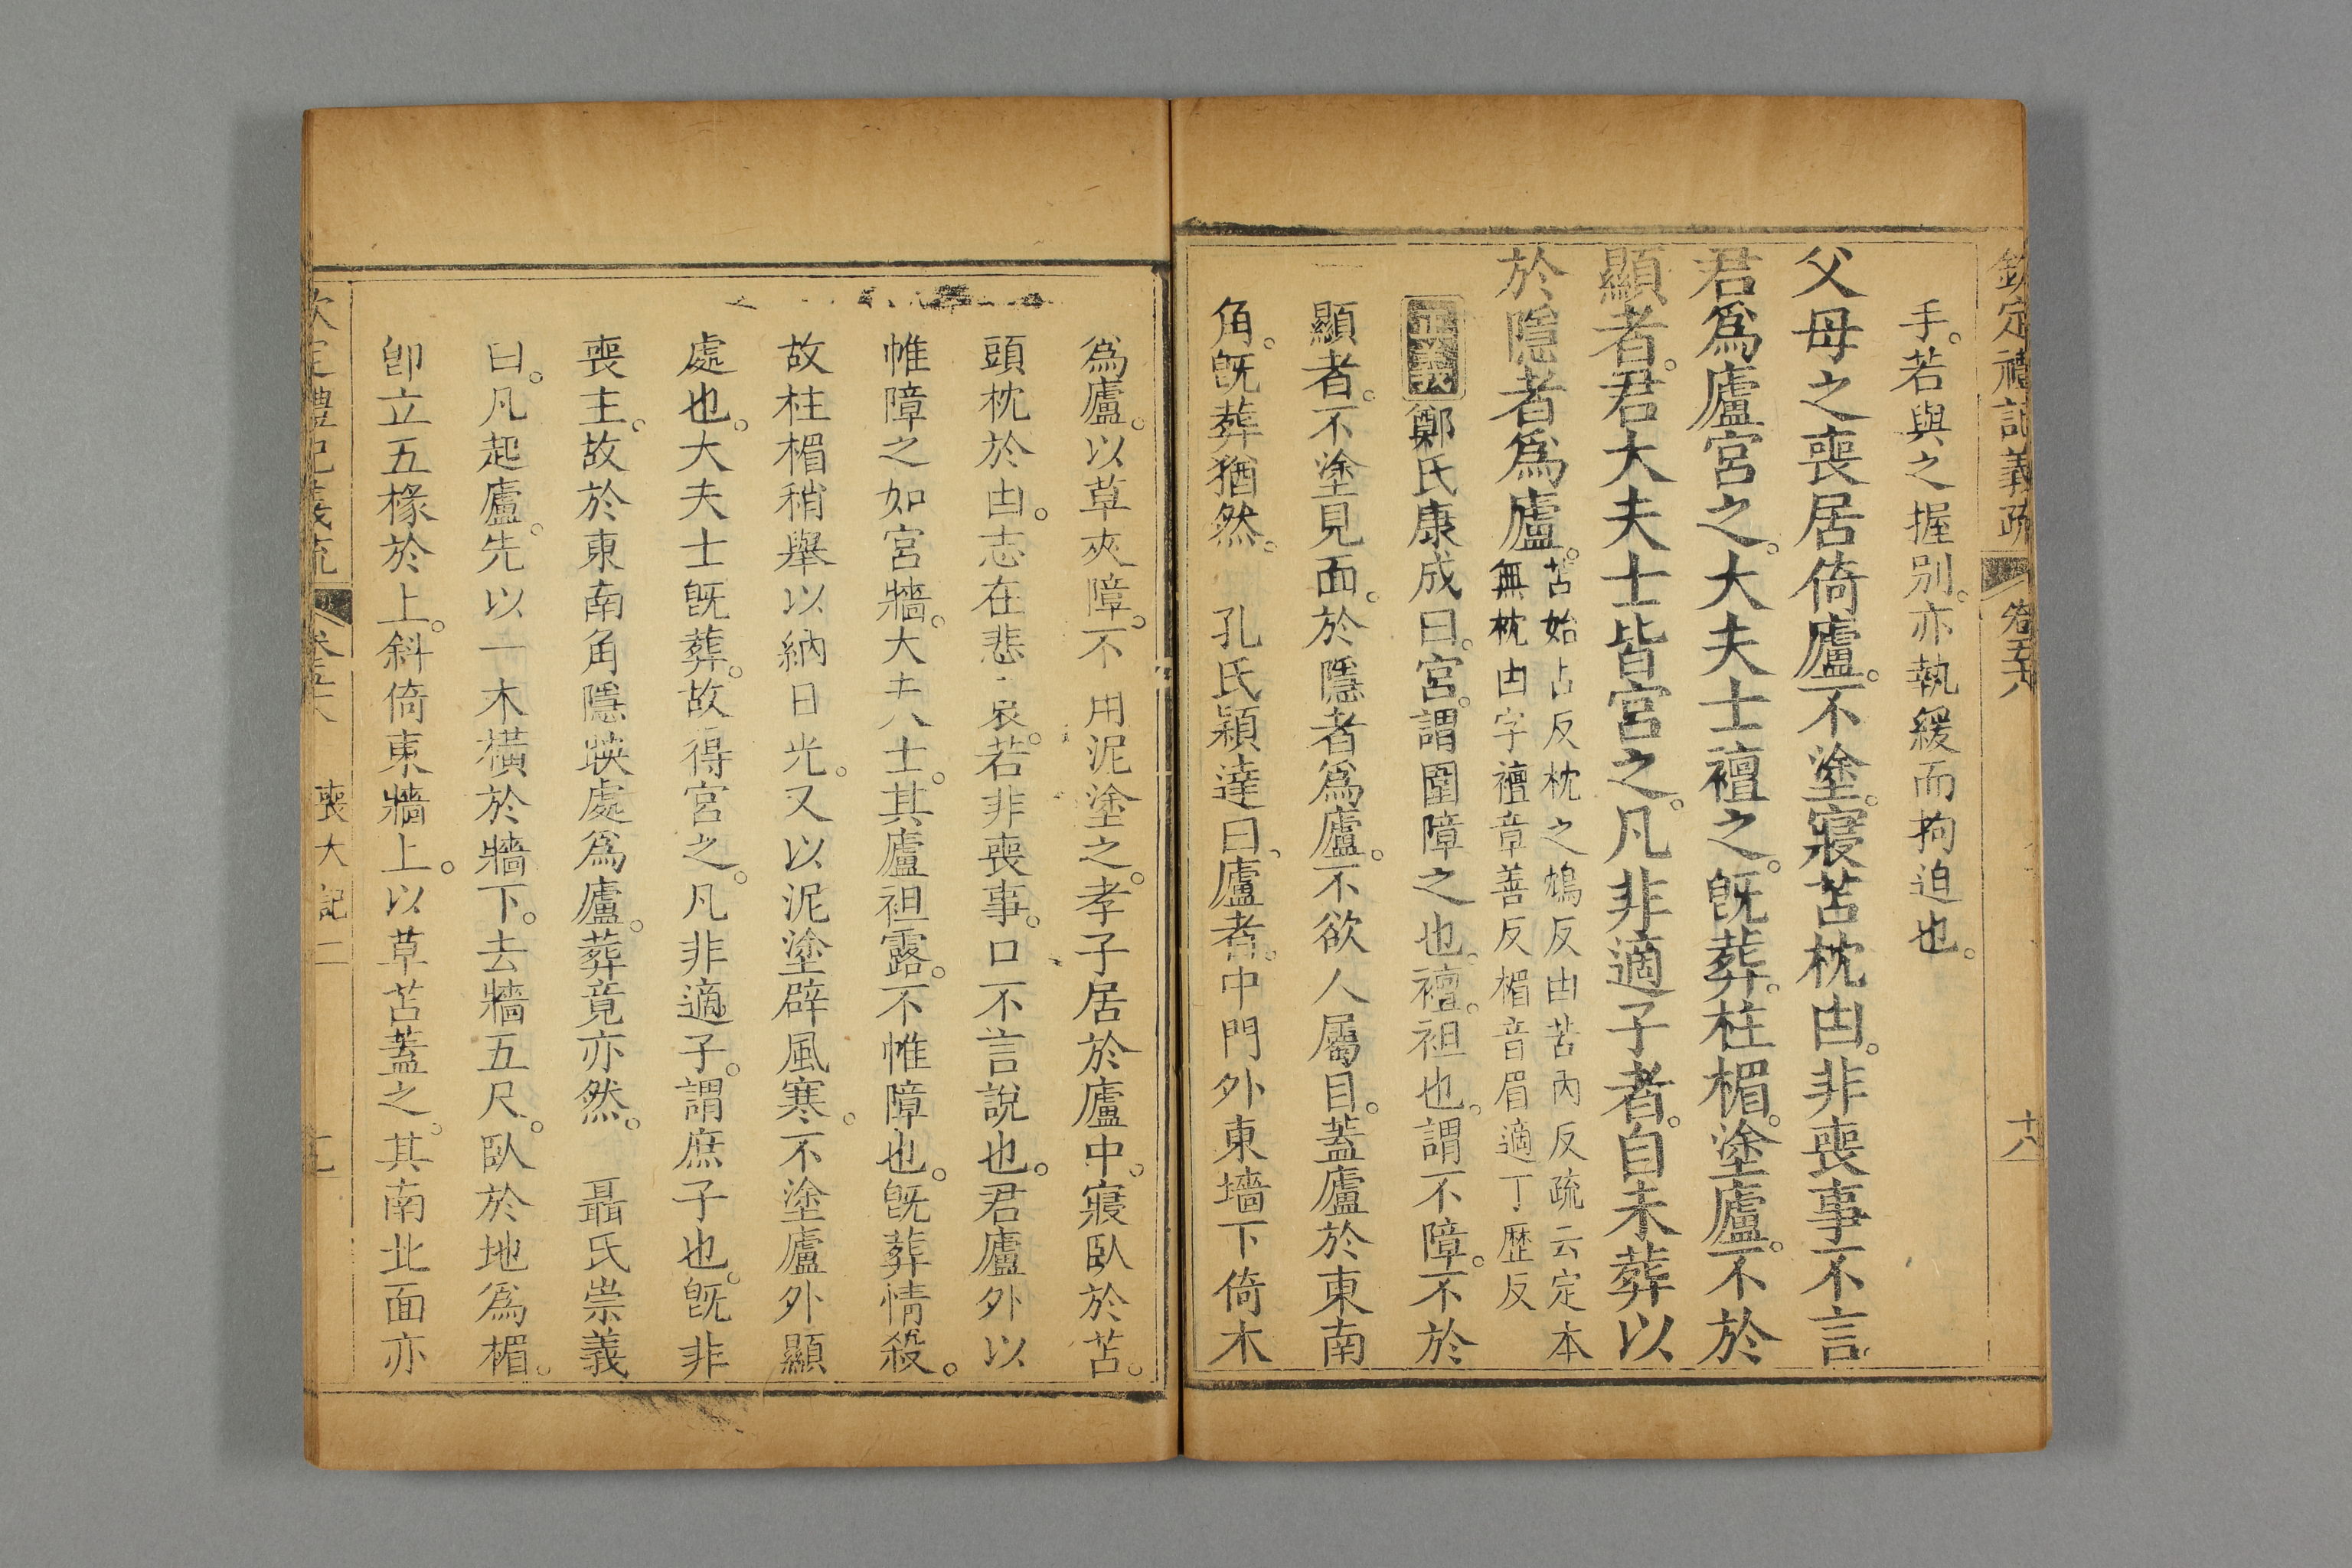 欽定禮記義疏 卷五十八 十八
手。若與之握別。亦執緩而拘迫也。
父母之喪居倚廬。不塗。寢苫枕凷。非喪事不言
君爲廬宮之。大夫士襢之。既葬。柱楣。塗廬。不於
顯者。君大夫士皆宮之。凡非適子者。自未葬以
於隱者爲廬。苫始占反枕之鴆反凷苦內反疏云定本
無枕凷字襢章善反楣音眉適丁歷反
正義 鄭氏康成曰。宮。謂圍障之也。襢。袒也。謂不障。不於
顯者。不塗見面。於隱者爲廬。不欲人屬目。蓋廬於東南
角。既葬猶然。 孔氏穎達曰。廬者。中門外東墻下倚木
爲廬。以草夾障。不用泥塗之。孝子居於廬中。寢臥於苫。
頭枕於凷。志在悲哀。若非喪事。口不言說也。君廬外以
帷障之如宮牆。大夫士。其廬袒露。不帷障也。既葬情殺。
故柱楣稍舉以納日光。又以泥塗辟風寒。不塗廬外顯
處也。大夫士既葬。故得宮之。凡非適子。謂庶子也。既非
喪主。故於東南角隱暎處爲廬。葬竟亦然。 聶氏崇義
曰。凡起廬。先以一木橫於牆下。去牆五尺。臥於地爲楣。
卽立五椽於上。斜倚東牆上。以草苫蓋之。其南北面亦
欽定禮記義疏 卷五十八 喪大記二